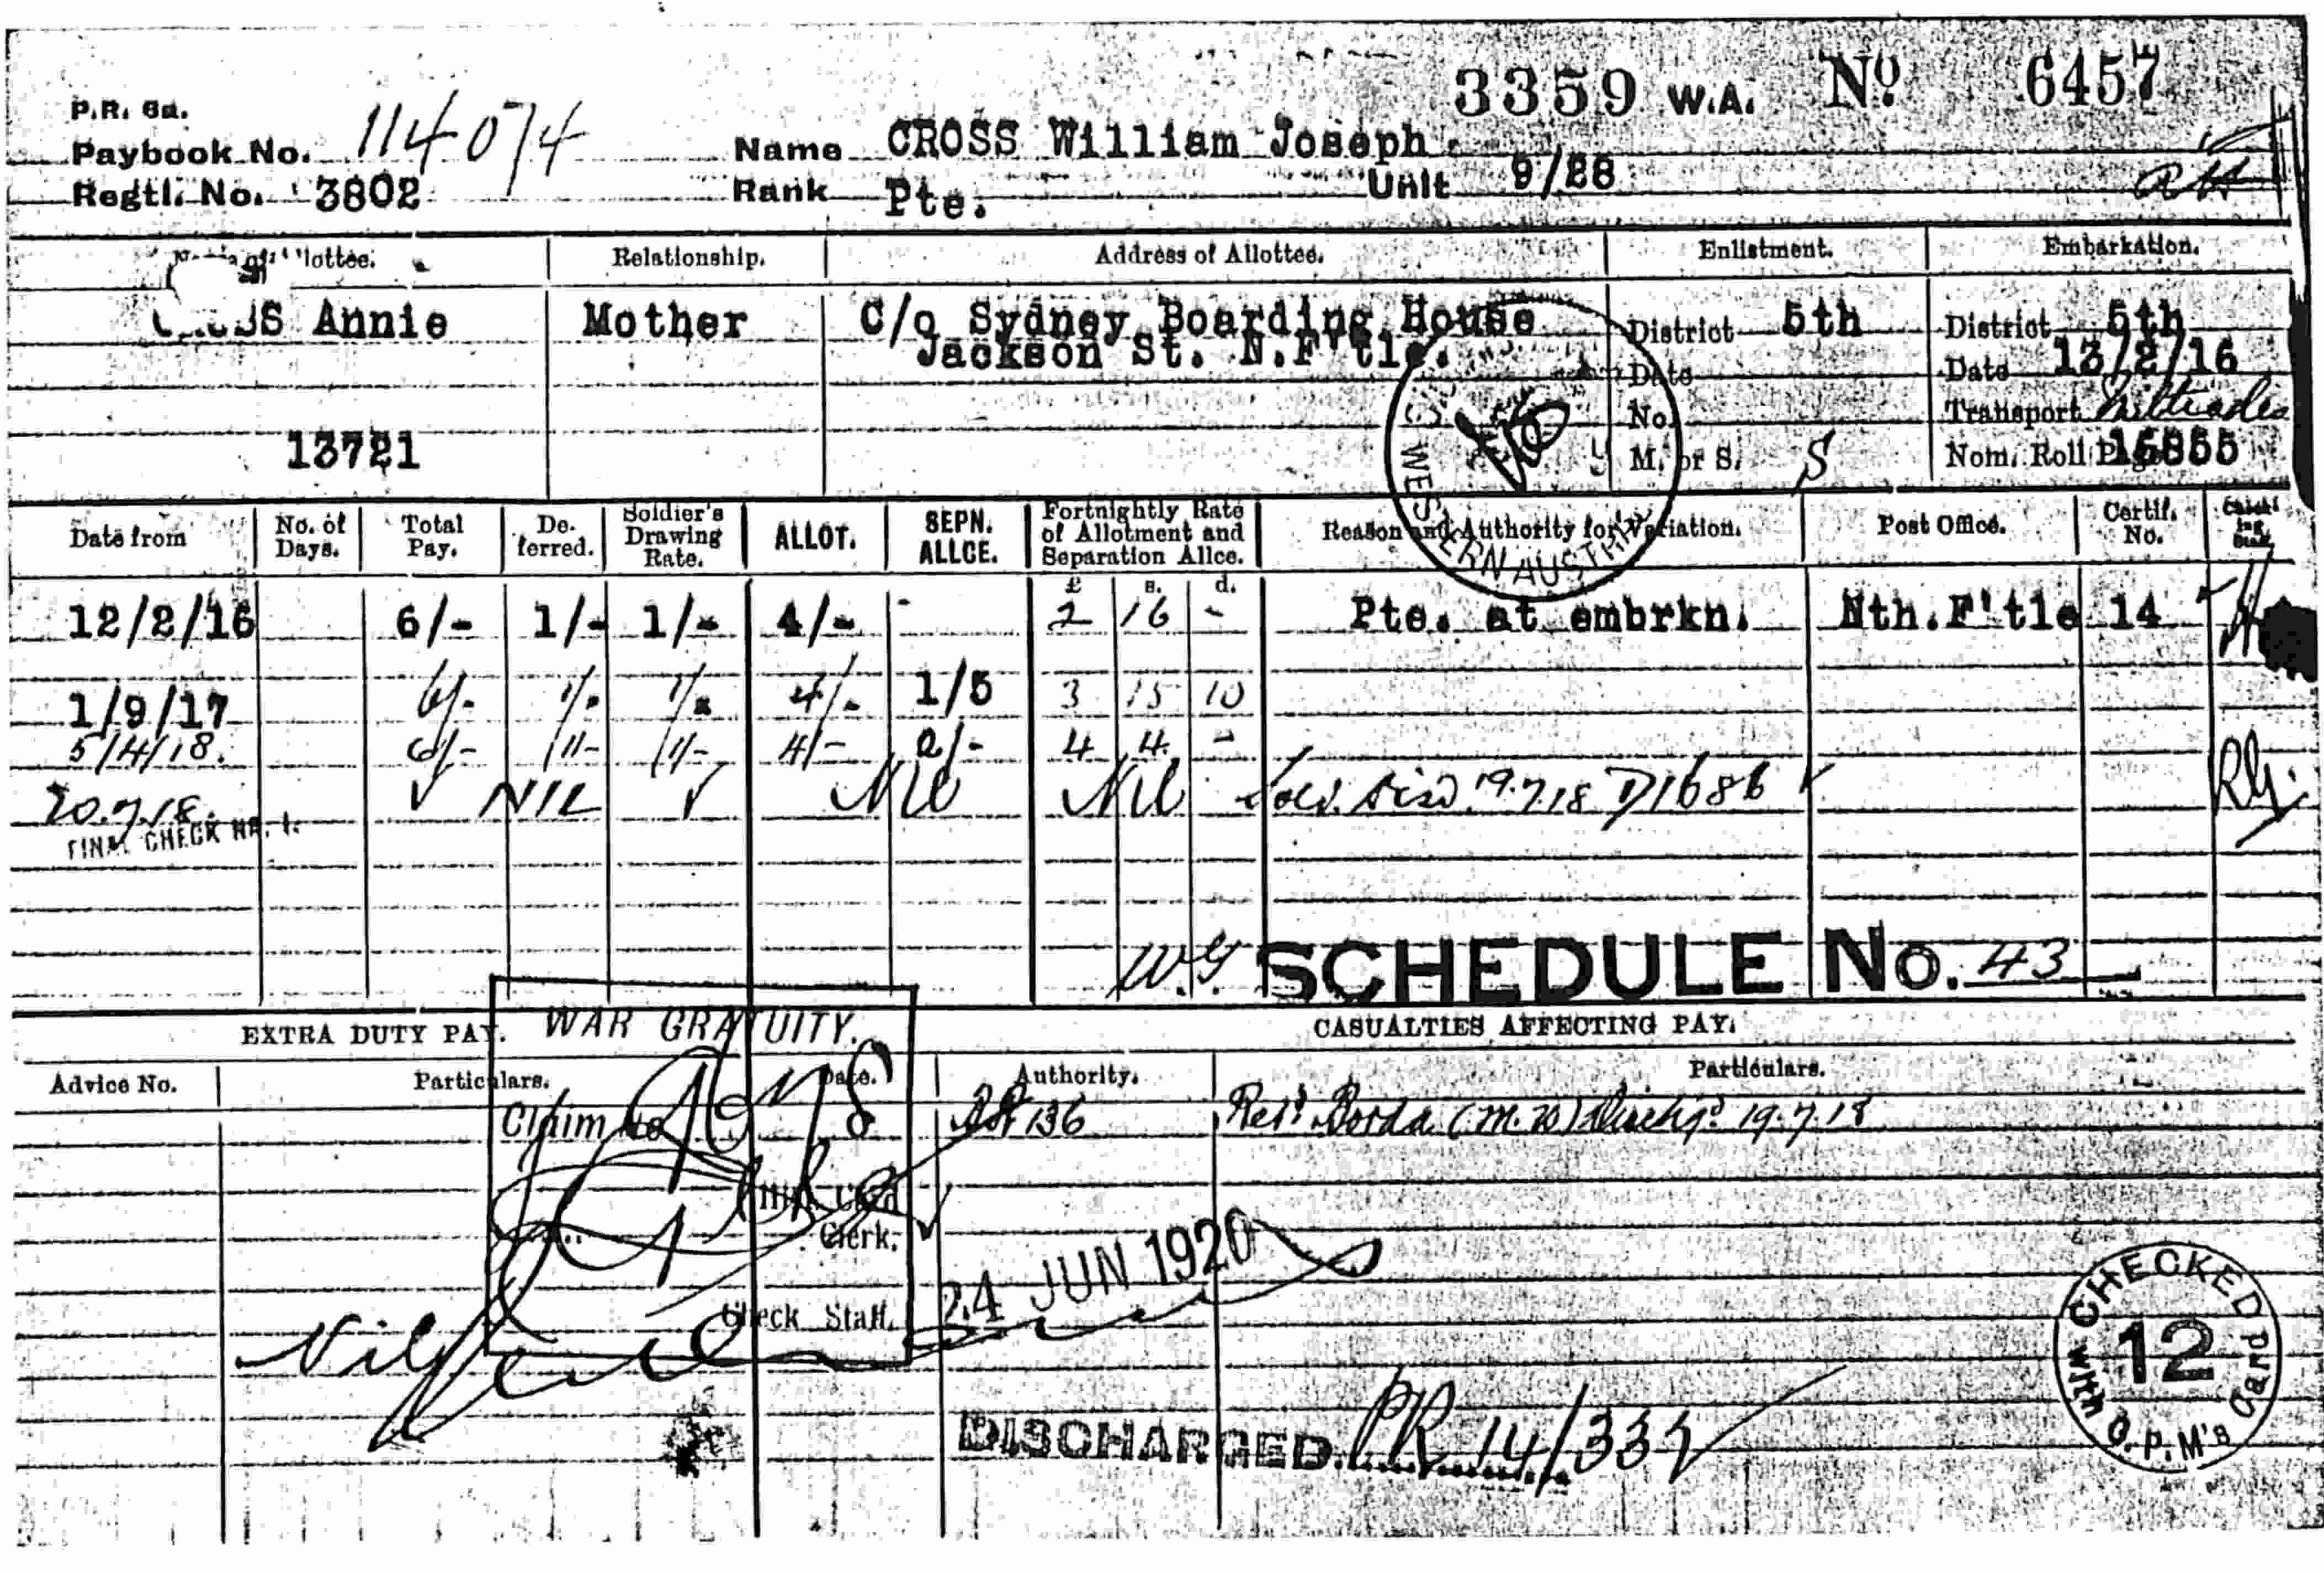 3359 W.A. Nº 6457
P.R. 6a.
Paybook No. 114074
Name CROSS William Joseph
Regtl. No. 3802
Rank Pte. Unit 9/28
lottee. Relationship. Address of Allottee. Enlistment. Embarkation.
Annie Mother C/o Sydney Boarding House
Jackson St. N.F'tle.
District 5th District 5th
Date Date 13/2/16
No. Transport Miltiades
13721 M. or S. S Nom. Roll 15855
Date from No. of Days. Total Pay. Deferred. Soldier's Drawing Rate. ALLOT. SEPN. ALLCE. Fortnightly Rate of Allotment and Separation Allce. Reason and Authority for Variation. Post Office. Certif. No.
WESTERN AUSTRALIA
£ s. d.
12/2/16 6/- 1/- 1/- 4/- - 2 16 - Pte. at embrkn. Nth.F'tle 14
1/9/17 6/- 1/- 1/- 4/- 1/5 3 15 10
5/4/18. 6/- 1/- 1/- 4/- 2/- 4 4 -
20.7.18. NIL Nil Nil 19.7.18 D1686
FINAL CHECK No. 1.
W.G. SCHEDULE No. 43
EXTRA DUTY PAY. WAR GRATUITY. CASUALTIES AFFECTING PAY.
Advice No. Particulars. Date. Authority. Particulars.
Claim No 136 Retd Borda (M.U) Dischgd 19.7.18
Card
Clerk.
24 JUN 1920
Check Staff.
Nil
DISCHARGED. PR 14/334
CHECKED WITH 12 O.P.M's Card